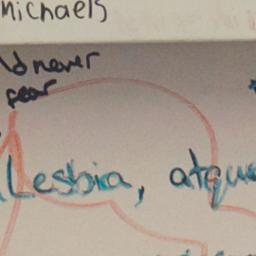 Michaels
never
fear
Lesbia, atque